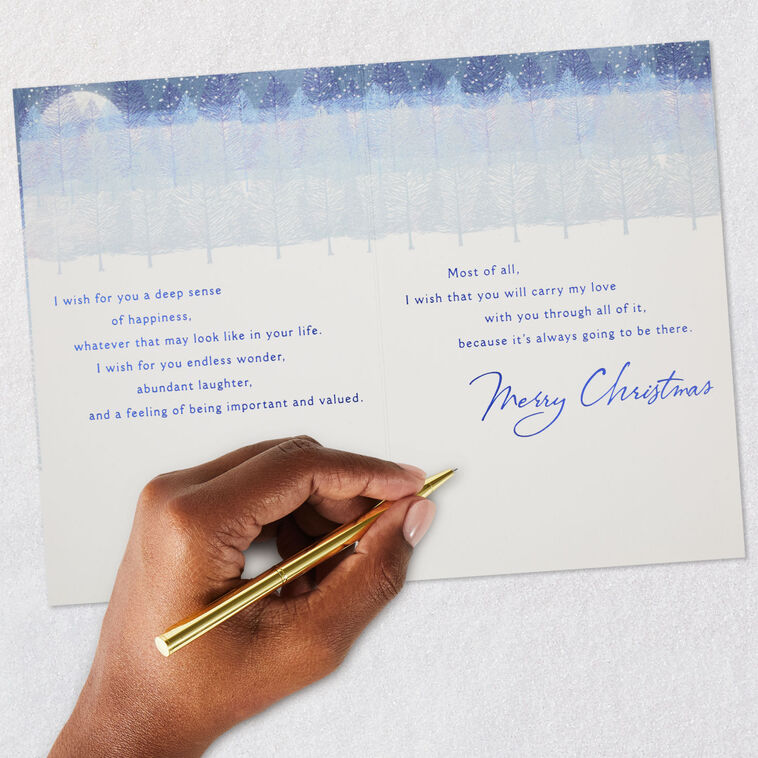 I wish for you a deep sense
of happiness,
whatever that may look like in your life.
I wish for you endless wonder,
abundant laughter,
and a feeling of being important and valued.
Most of all,
I wish that you will carry my love
with you through all of it,
because it's always going to be there.
Merry Christmas